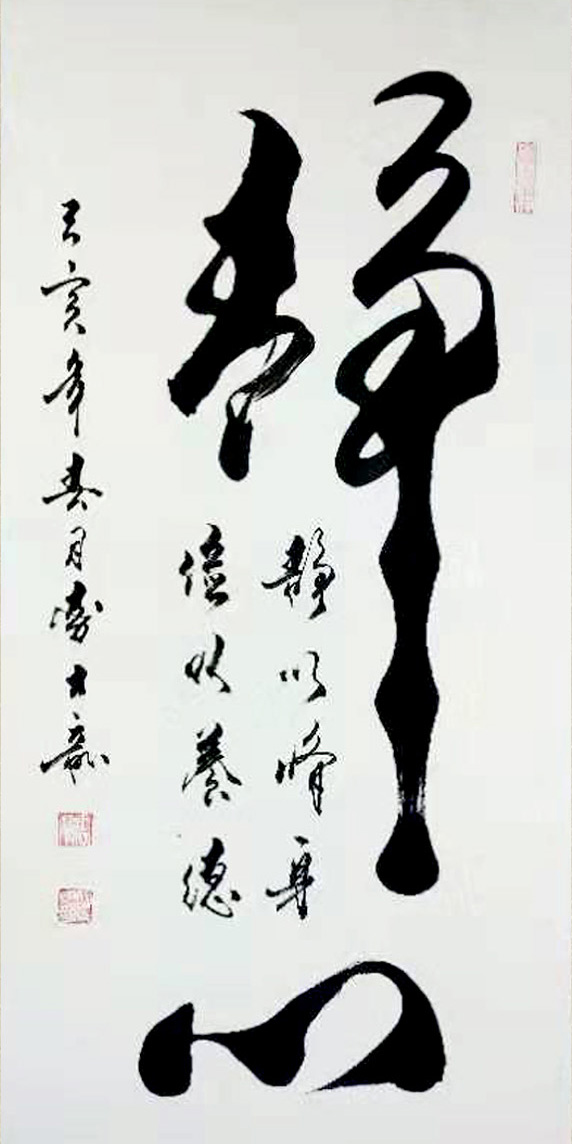 静心
静以修身
俭以養德
己亥年春月